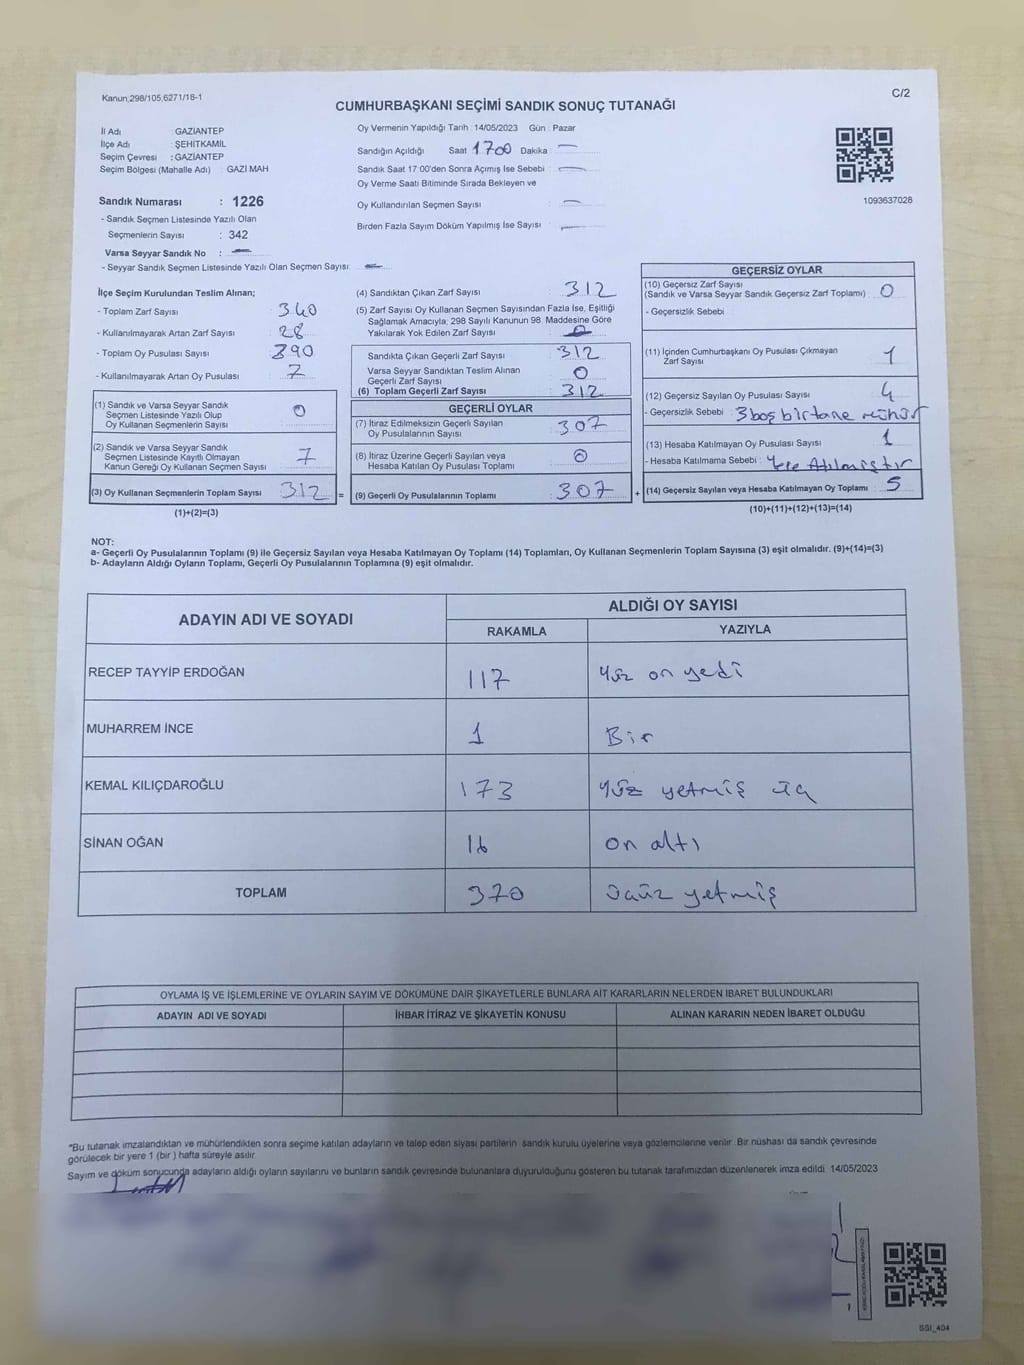 Kanun,298/105,6271/18-1
C/2
CUMHURBAŞKANI SEÇİMİ SANDIK SONUÇ TUTANAĞI
İl Adı : GAZİANTEP
İlçe Adı : ŞEHİTKAMİL
Seçim Çevresi : GAZİANTEP
Seçim Bölgesi (Mahalle Adı) : GAZİ MAH
Sandık Numarası : 1226
- Sandık Seçmen Listesinde Yazılı Olan
Seçmenlerin Sayısı : 342
Varsa Seyyar Sandık No : —
- Seyyar Sandık Seçmen Listesinde Yazılı Olan Seçmen Sayısı: —
Oy Vermenin Yapıldığı Tarih : 14/05/2023 Gün : Pazar
Sandığın Açıldığı Saat 1700 Dakika : —
Sandık Saat 17:00'den Sonra Açımış İse Sebebi : —
Oy Verme Saati Bitiminde Sırada Bekleyen ve
Oy Kullandırılan Seçmen Sayısı : —
Birden Fazla Sayım Döküm Yapılmış İse Sayısı : —
1093637028
İlçe Seçim Kurulundan Teslim Alınan;
- Toplam Zarf Sayısı : 340
- Kullanılmayarak Artan Zarf Sayısı : 28
- Toplam Oy Pusulası Sayısı : 390
- Kullanılmayarak Artan Oy Pusulası : 7
(1) Sandık ve Varsa Seyyar Sandık
Seçmen Listesinde Yazılı Olup
Oy Kullanan Seçmenlerin Sayısı : 0
(2) Sandık ve Varsa Seyyar Sandık
Seçmen Listesinde Kayıtlı Olmayan
Kanun Gereği Oy Kullanan Seçmen Sayısı : 7
(3) Oy Kullanan Seçmenlerin Toplam Sayısı : 312 =
(1)+(2)=(3)
(4) Sandıktan Çıkan Zarf Sayısı : 312
(5) Zarf Sayısı Oy Kullanan Seçmen Sayısından Fazla İse, Eşitliği
Sağlamak Amacıyla; 298 Sayılı Kanunun 98. Maddesine Göre
Yakılarak Yok Edilen Zarf Sayısı : 0
Sandıkta Çıkan Geçerli Zarf Sayısı : 312
Varsa Seyyar Sandıktan Teslim Alınan
Geçerli Zarf Sayısı : 0
(6) Toplam Geçerli Zarf Sayısı : 312
GEÇERLİ OYLAR
(7) İtiraz Edilmeksizin Geçerli Sayılan
Oy Pusulalarının Sayısı : 307
(8) İtiraz Üzerine Geçerli Sayılan veya
Hesaba Katılan Oy Pusulası Toplamı : 0
(9) Geçerli Oy Pusulalarının Toplamı : 307 +
GEÇERSİZ OYLAR
(10) Geçersiz Zarf Sayısı
(Sandık ve Varsa Seyyar Sandık Geçersiz Zarf Toplamı) : 0
- Geçersizlik Sebebi :
(11) İçinden Cumhurbaşkanı Oy Pusulası Çıkmayan
Zarf Sayısı : 1
(12) Geçersiz Sayılan Oy Pusulası Sayısı : 4
- Geçersizlik Sebebi : 3 boş bir tane mühür
(13) Hesaba Katılmayan Oy Pusulası Sayısı : 1
- Hesaba Katılmama Sebebi : Yere Atılmıştır
(14) Geçersiz Sayılan veya Hesaba Katılmayan Oy Toplamı : 5
(10)+(11)+(12)+(13)=(14)
NOT:
a- Geçerli Oy Pusulalarının Toplamı (9) ile Geçersiz Sayılan veya Hesaba Katılmayan Oy Toplamı (14) Toplamları, Oy Kullanan Seçmenlerin Toplam Sayısına (3) eşit olmalıdır. (9)+(14)=(3)
b- Adayların Aldığı Oyların Toplamı, Geçerli Oy Pusulalarının Toplamına (9) eşit olmalıdır.
ADAYIN ADI VE SOYADI ALDIĞI OY SAYISI
RAKAMLA YAZIYLA
RECEP TAYYİP ERDOĞAN 117 Yüz on yedi
MUHARREM İNCE 1 Bir
KEMAL KILIÇDAROĞLU 173 Yüz yetmiş üç
SİNAN OĞAN 16 On altı
TOPLAM 370 üçyüz yetmiş
OYLAMA İŞ VE İŞLEMLERİNE VE OYLARIN SAYIM VE DÖKÜMÜNE DAİR ŞİKAYETLERLE BUNLARA AİT KARARLARIN NELERDEN İBARET BULUNDUKLARI
ADAYIN ADI VE SOYADI İHBAR İTİRAZ VE ŞİKAYETİN KONUSU ALINAN KARARIN NEDEN İBARET OLDUĞU
*Bu tutanak imzalandıktan ve mühürlendikten sonra seçime katılan adayların ve talep eden siyasi partilerin sandık kurulu üyelerine veya gözlemcilerine verilir. Bir nüshası da sandık çevresinde
görülecek bir yere 1 (bir ) hafta süreyle asılır.
Sayım ve döküm sonucunda adayların aldığı oyların sayılarını ve bunların sandık çevresinde bulunanlara duyurulduğunu gösteren bu tutanak tarafımızdan düzenlenerek imza edildi. 14/05/2023
SSI_404